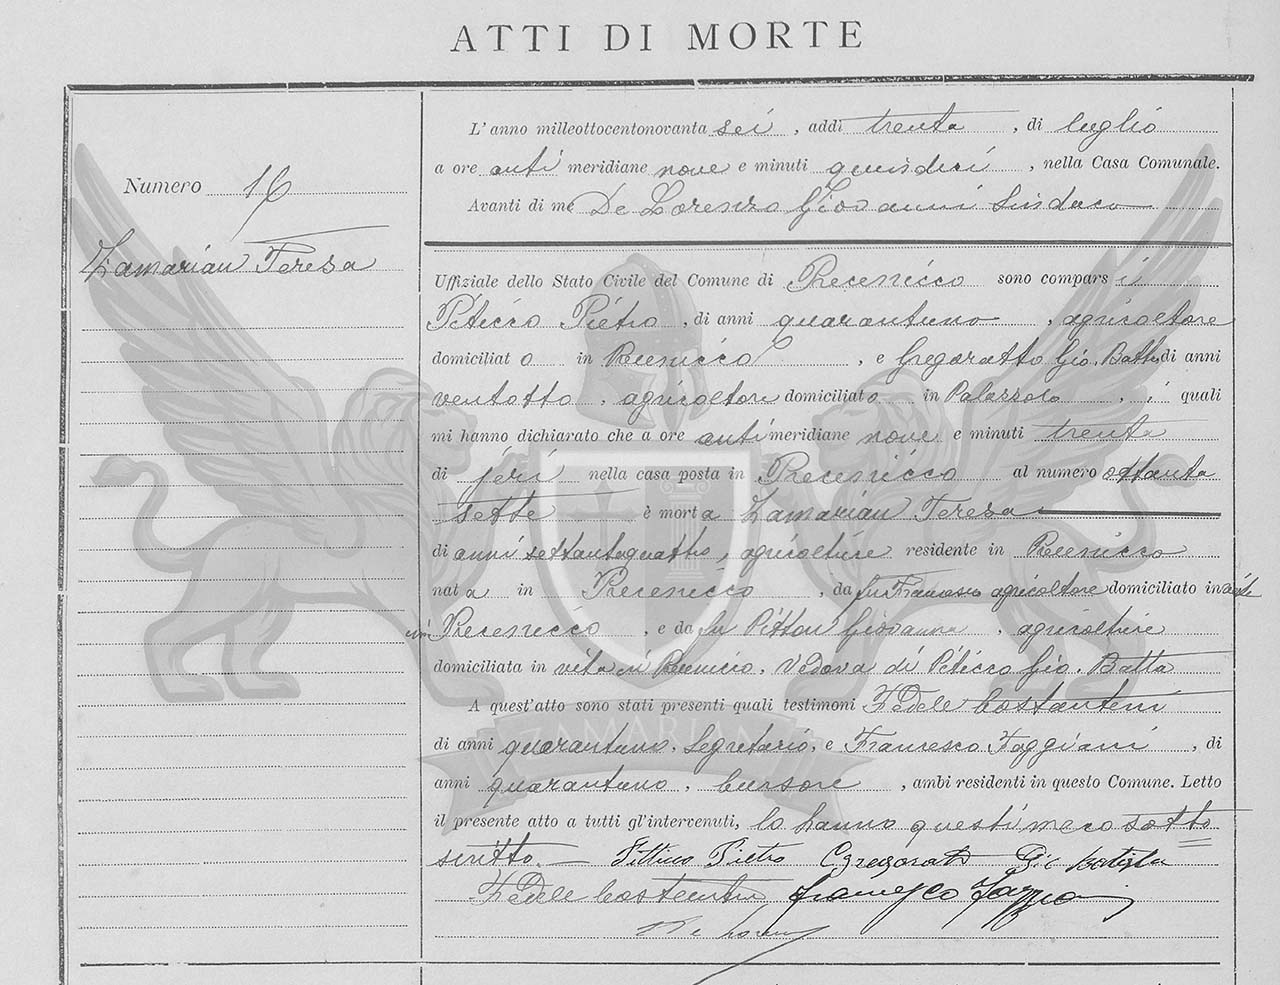 ATTI DI MORTE
Numero 16
Zamarian Teresa
L'anno milleottocentonovanta sei, addì trenta, di luglio
a ore anti meridiane nove e minuti quindici, nella Casa Comunale.
Avanti di me De Lorenzo Giovanni Sindaco
Uffiziale dello Stato Civile del Comune di Precenicco sono compars i
Peticco Pietro, di anni quarantuno, agricoltore
domiciliat o in Precenicco, e Gregoratto Gio. Batta di anni
ventotto, agricoltore domiciliato in Palazzolo, i quali
mi hanno dichiarato che a ore anti meridiane nove e minuti trenta
di jeri nella casa posta in Precenicco al numero ottanta
sette è mort a Zamarian Teresa
di anni settantaquattro, agricoltrice residente in Precenicco
nat a in Precenicco, da fu Francesco agricoltore domiciliato in vita
in Precenicco, e da fu Pitton Giovanna, agricoltrice
domiciliata in vita in Precenicco. Vedova di Peticco Gio. Batta
A quest'atto sono stati presenti quali testimoni Fedele Costantini
di anni quarantuno, Segretario, e Francesco Faggiani, di
anni quarantuno, cursore, ambi residenti in questo Comune. Letto
il presente atto a tutti gl'intervenuti, lo hanno questi meco sotto
scritto. Pietro Gregorato Gio Batista
Fedele Costantini Francesco
De Loren
ZAMARIAN